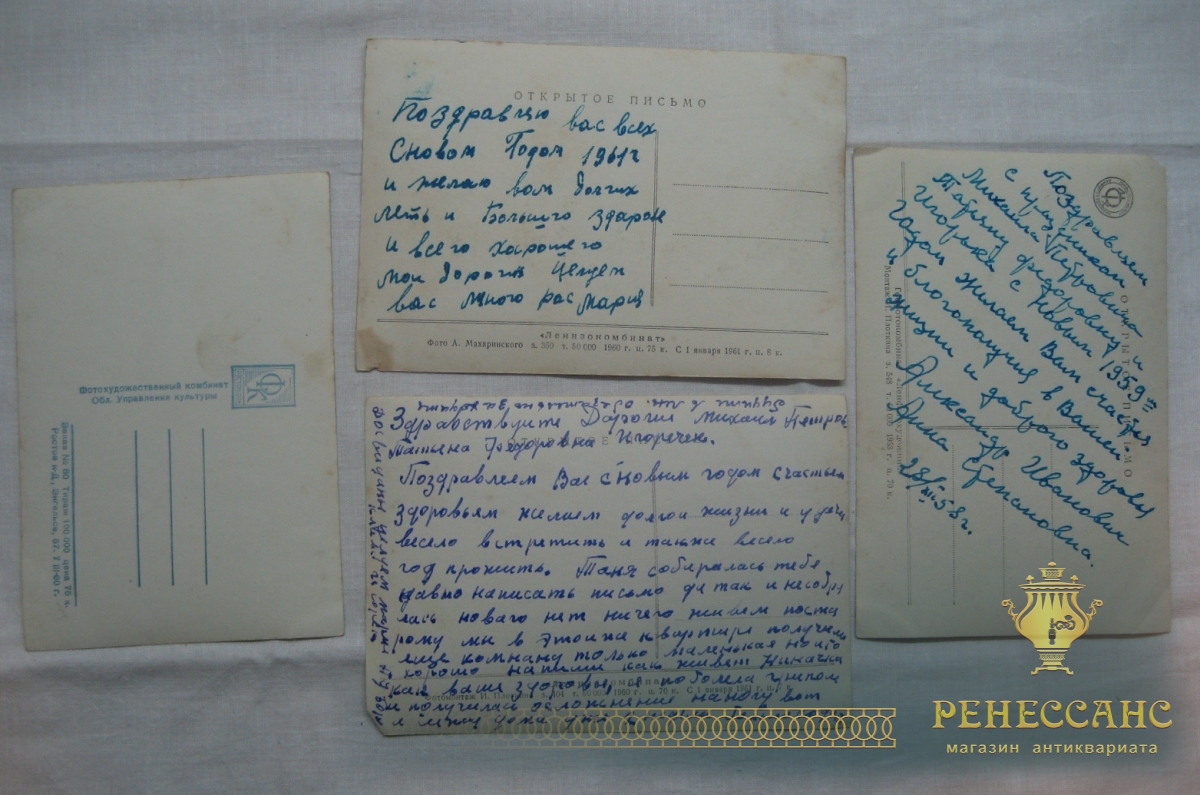 Фотохудожественный комбинат
Обл. Управления культуры
Заказ № 60 Тираж 100 000 цена 75 к.
Ростов н-Д, Энгельса, 57. 7 III-60 г.
ОТКРЫТОЕ ПИСЬМО
Поздравляю вас всех
Сновом Годом 1961г
и желаю вам долгих
леть и Большого здаровя
и всего харошего
мои дороги Целуем
вас много рас Мария
«Ленизокомбинат»
Фото А. Махаринского з. 350 т. 50 000 1960 г. ц. 75 к. С 1 января 1961 г. ц. 8 к.
Здравствуйте Дарогии Михаил Петров
Татьяна Федоровна Игоречек.
Поздравляем Вас сновым годом счастья
здоровьям желаем долгои жизни и удачи
весело встретить и также весело
год прожить. Таня собиралась тебе
давно написать письмо да так и несобра
лась новаго нет ничего живем поста
рому мы в этоиже квартире получили
еще комнату только маленькая но
хорошо напиши как живет Ниначка
как ваше здоровье, я поболела грипом
и получилась осложнение наногу вот
Фотомонтаж И. т. 50 000 1960 г. ц. 70 к. С 1 января 1961 г.
я лежу дома
Поздравляем
с праздником
Михаила Петровича и
Татьяну федоровну и
Игорька с Новым 1959 м
годом желаем Вам счастья
и благополучия в Вашей
жизни и доброго здоровья
Александр Иванович
Анна Степановна.
28/XII 58 г.
ОТКРЫТОЕ ПИСЬМО
РЕНЕССАНС
магазин антиквариата